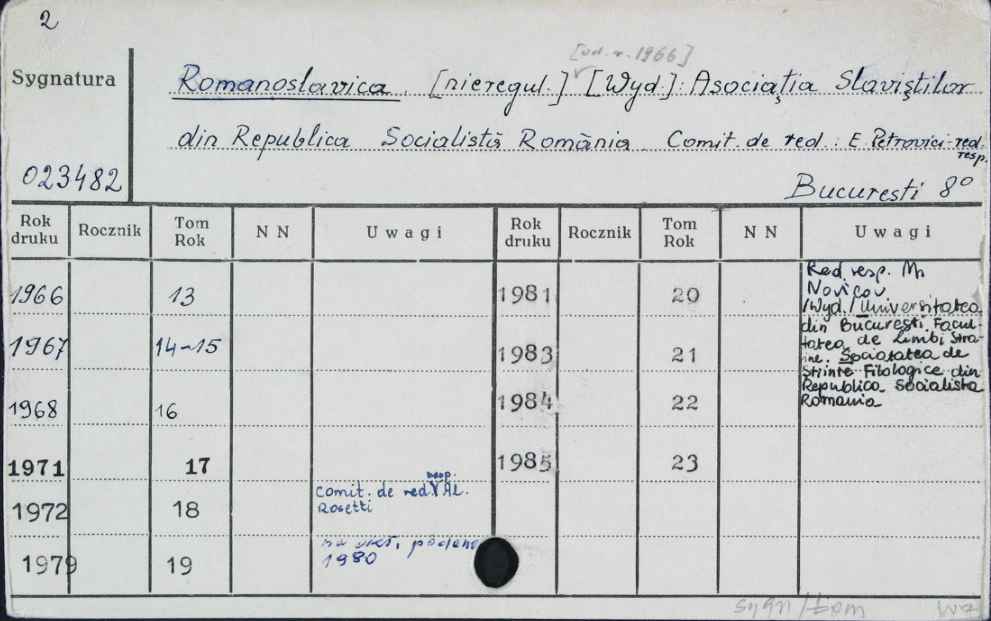 2
[od r. 1966]
Sygnatura
Romanoslavica [nieregul.] [Wyd.]: Asociaţia Slaviştilor
din Republica Socialistă România Comit. de red.: E. Petrovici-red.
resp.
023482
Bucureşti 8°
Rok druku Rocznik Tom Rok N N Uwagi Rok druku Rocznik Tom Rok N N Uwagi
1966 13
1967 14-15
1968 16
1971 17
1972 18 Comit. de red. resp. Al.
Rosetti
1979 19 podano
1980
1981 20
1983 21
1984 22
1985 23
Red. resp. M.
Novicov
/Wyd./ Universitatea
din Bucureşti, Facul-
tatea de Limbi Stra-
ine. Societatea de
Stiinte Filologice din
Republica Socialista
Romania